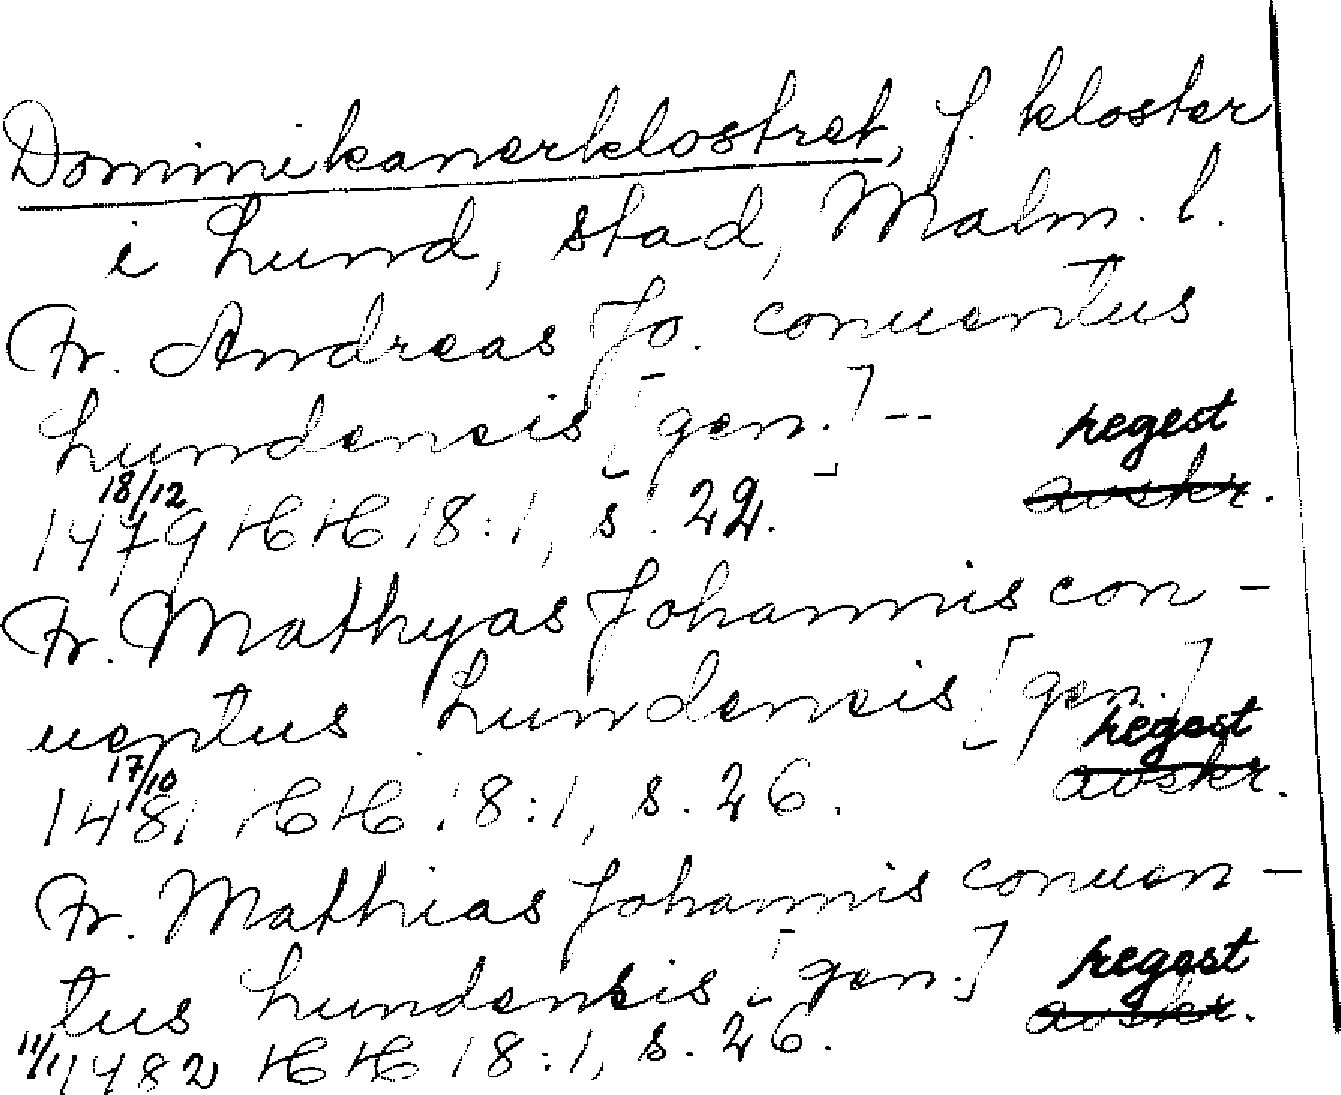 Dominikanerklostret, f. kloster
i Lund, stad, Malm. l.
Fr. Andreas Jo. conuentus
Lundensis [gen.] --
regest
18/12 avskr.
1479 HH 18:1, s. 22.
Fr. Mathyas Johannis con-
uentus Lundensis [gen.]
regest
17/10 avskr.
1481 HH 18:1, s. 26.
Fr. Mathias Johannis conuen-
tus Lundensis [gen.] regest
avskr.
11/1 1482 HH 18:1, s. 26.